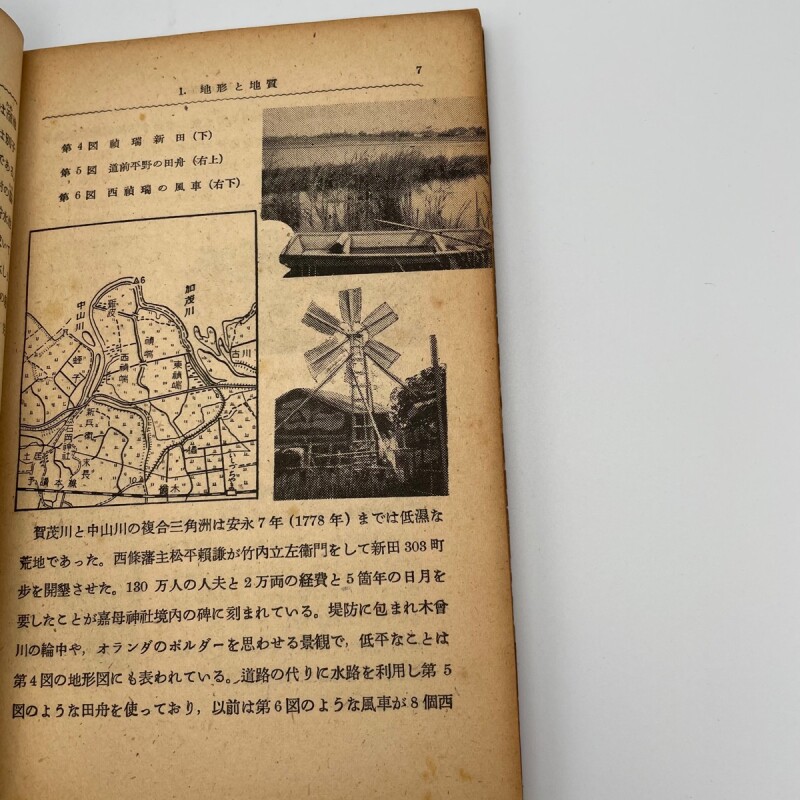 1. 地形と地質
7
第4図 禎瑞新田(下)
第5図 道前平野の田舟(右上)
第6図 西禎瑞の風車(右下)
中山川
加茂川
6
禎瑞
西禎瑞
東禎瑞
古川
新兵衛
石岡神社
末長
橘
賀茂川と中山川の複合三角洲は安永7年(1778年)までは低濕な
荒地であった。西條藩主松平頼謙が竹内立左衞門をして新田303町
歩を開墾させた。130万人の人夫と2万両の経費と5箇年の日月を
要したことが嘉母神社境内の碑に刻まれている。堤防に包まれ木曾
川の輪中や,オランダのポルダーを思わせる景観で,低平なことは
第4図の地形図にも表われている。道路の代りに水路を利用し第5
図のような田舟を使っており,以前は第6図のような風車が8個西